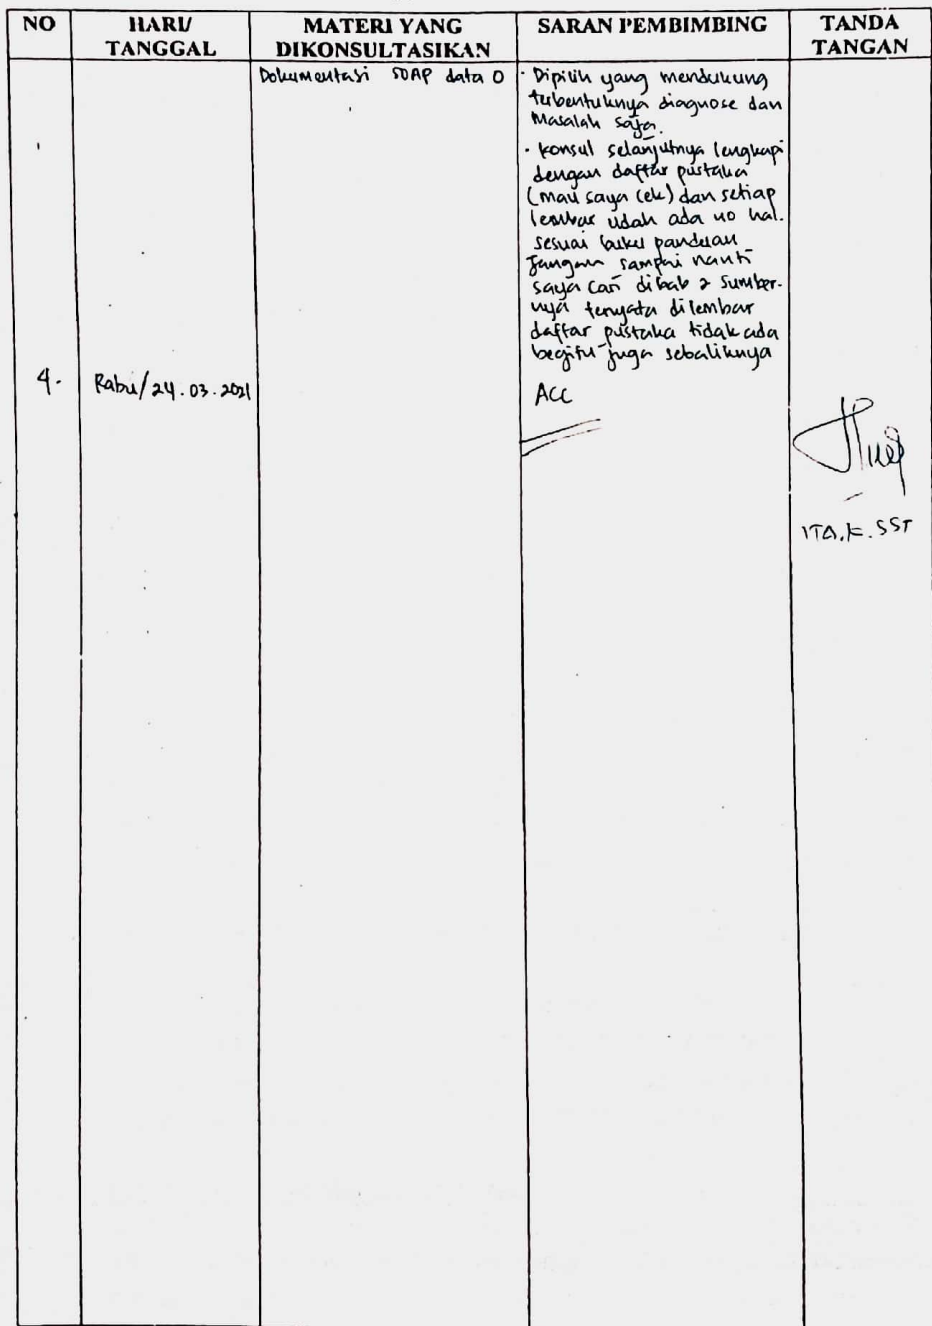 NO HARI/ MATERI YANG SARAN PEMBIMBING TANDA
TANGGAL DIKONSULTASIKAN TANGAN
Dokumentasi SOAP data O
· Dipilih yang mendukung
terbentuknya diagnose dan
Masalah saja.
· Konsul selanjutnya lengkapi
dengan daftar pustaka
(mau saya cek) dan setiap
lembar udah ada no hal.
sesuai buku panduan
Jangan sampai nanti
saya cari dibab 2 sumber-
nya ternyata dilembar
daftar pustaka tidak ada
begitu juga sebaliknya
4. Rabu/24.03.2021 ACC
ITA.K.SST